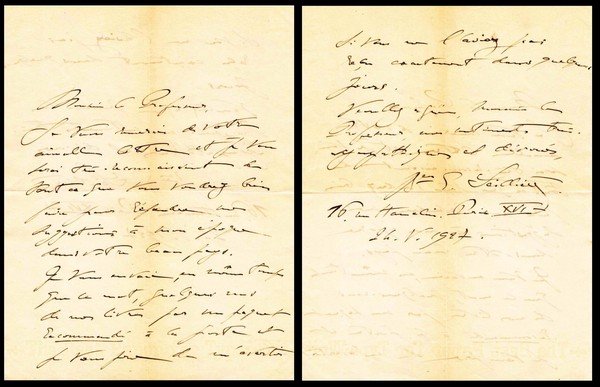 Monsieur le Professeur,
Je vous remercie de votre
aimable lettre et je vous
serai très reconnaissant de
tout ce que vous voudrez bien
faire pour répandre
suggestions à mon
dans votre beau pays.
Je vous envoie, en même temps
que ce mot, quelques uns
de mes livres par un paquet
recommandé à la poste et
je vous prie de m'avertir
si vous ne l'aviez pas
reçu dans quelques
jours.
Veuillez agréer, Monsieur le
Professeur, mes sentiments très
sympathiques et dévoués,
16, rue Hamelin. Paris. XVIe
24. V. 1927.